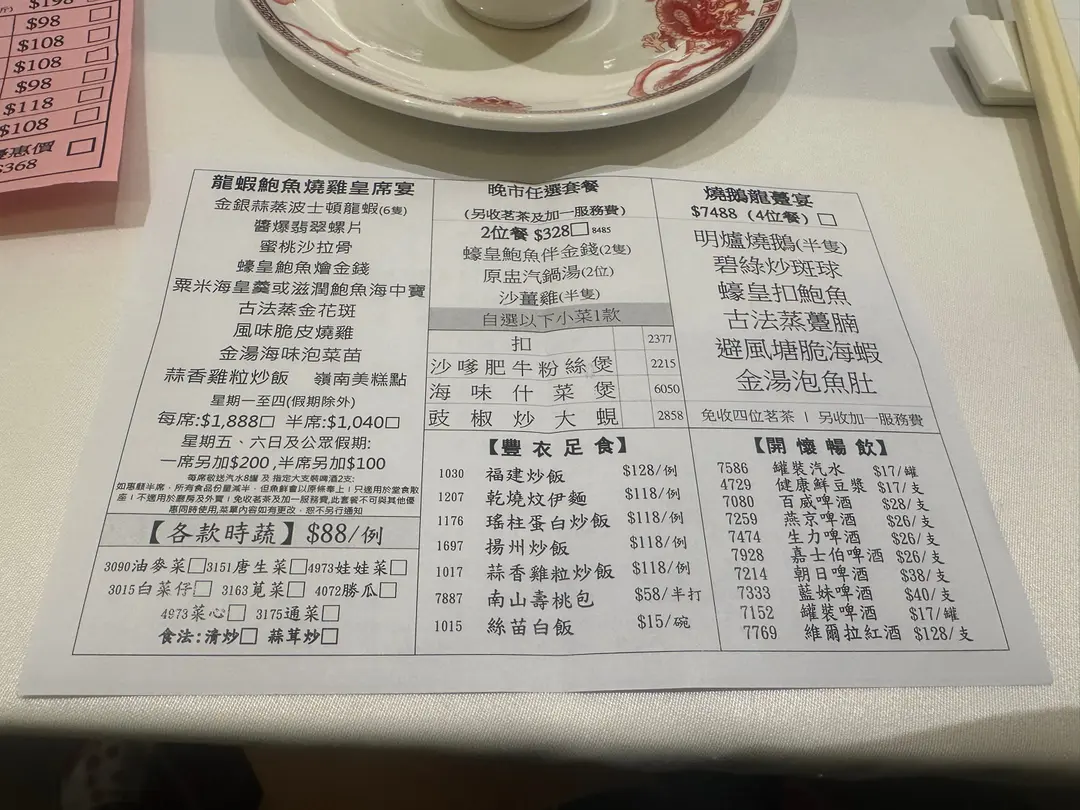 $198
$98
$108
$108
$98
$118
$108
惠價
$368
龍蝦鮑魚燒雞皇席宴
金銀蒜蒸波士頓龍蝦(6隻)
醬爆翡翠螺片
蜜桃沙拉骨
蠔皇鮑魚燴金錢
粟米海皇羹或滋潤鮑魚海中寶
古法蒸金花斑
風味脆皮燒雞
金湯海味泡菜苗
蒜香雞粒炒飯 嶺南美糕點
星期一至四(假期除外)
每席:$1,888□ 半席:$1,040□
星期五、六日及公眾假期:
一席另加$200,半席另加$100
每席敬送汽水8罐 及 指定大支裝啤酒2支:
如惠顧半席，所有食品份量減半，但魚鮮會以原條奉上 | 只適用於堂食散
座 | 不適用於廳房及外賣 | 免收茗茶及加一服務費,此套餐不可與其他優
惠同時使用,菜單內容如有更改，恕不另行通知
【各款時蔬】$88/例
3090油麥菜□3151唐生菜□4973娃娃菜□
3015白菜仔□ 3163莧菜□ 4072勝瓜□
4973菜心□ 3175通菜□
食法:清炒□ 蒜茸炒□
晚市任選套餐
(另收茗茶及加一服務費)
2位餐 $328□ 8485
蠔皇鮑魚伴金錢(2隻)
原盅汽鍋湯(2位)
沙薑雞(半隻)
自選以下小菜1款
扣 2377
沙嗲肥牛粉絲煲 2215
海味什菜煲 6050
豉椒炒大蜆 2858
【豐衣足食】
1030 福建炒飯 $128/例
1207 乾燒炆伊麵 $118/例
1176 瑤柱蛋白炒飯 $118/例
1697 揚州炒飯 $118/例
1017 蒜香雞粒炒飯 $118/例
7887 南山壽桃包 $58/半打
1015 絲苗白飯 $15/碗
燒鵝龍躉宴
$7488 (4位餐) □
明爐燒鵝(半隻)
碧綠炒斑球
蠔皇扣鮑魚
古法蒸躉腩
避風塘脆海蝦
金湯泡魚肚
免收四位茗茶 | 另收加一服務費
【開懷暢飲】
7586 罐裝汽水 $17/罐
4729 健康鮮豆漿 $17/支
7080 百威啤酒 $28/支
7259 燕京啤酒 $26/支
7474 生力啤酒 $26/支
7928 嘉士伯啤酒 $26/支
7214 朝日啤酒 $38/支
7333 藍妹啤酒 $40/支
7152 罐裝啤酒 $17/罐
7769 維爾拉紅酒 $128/支